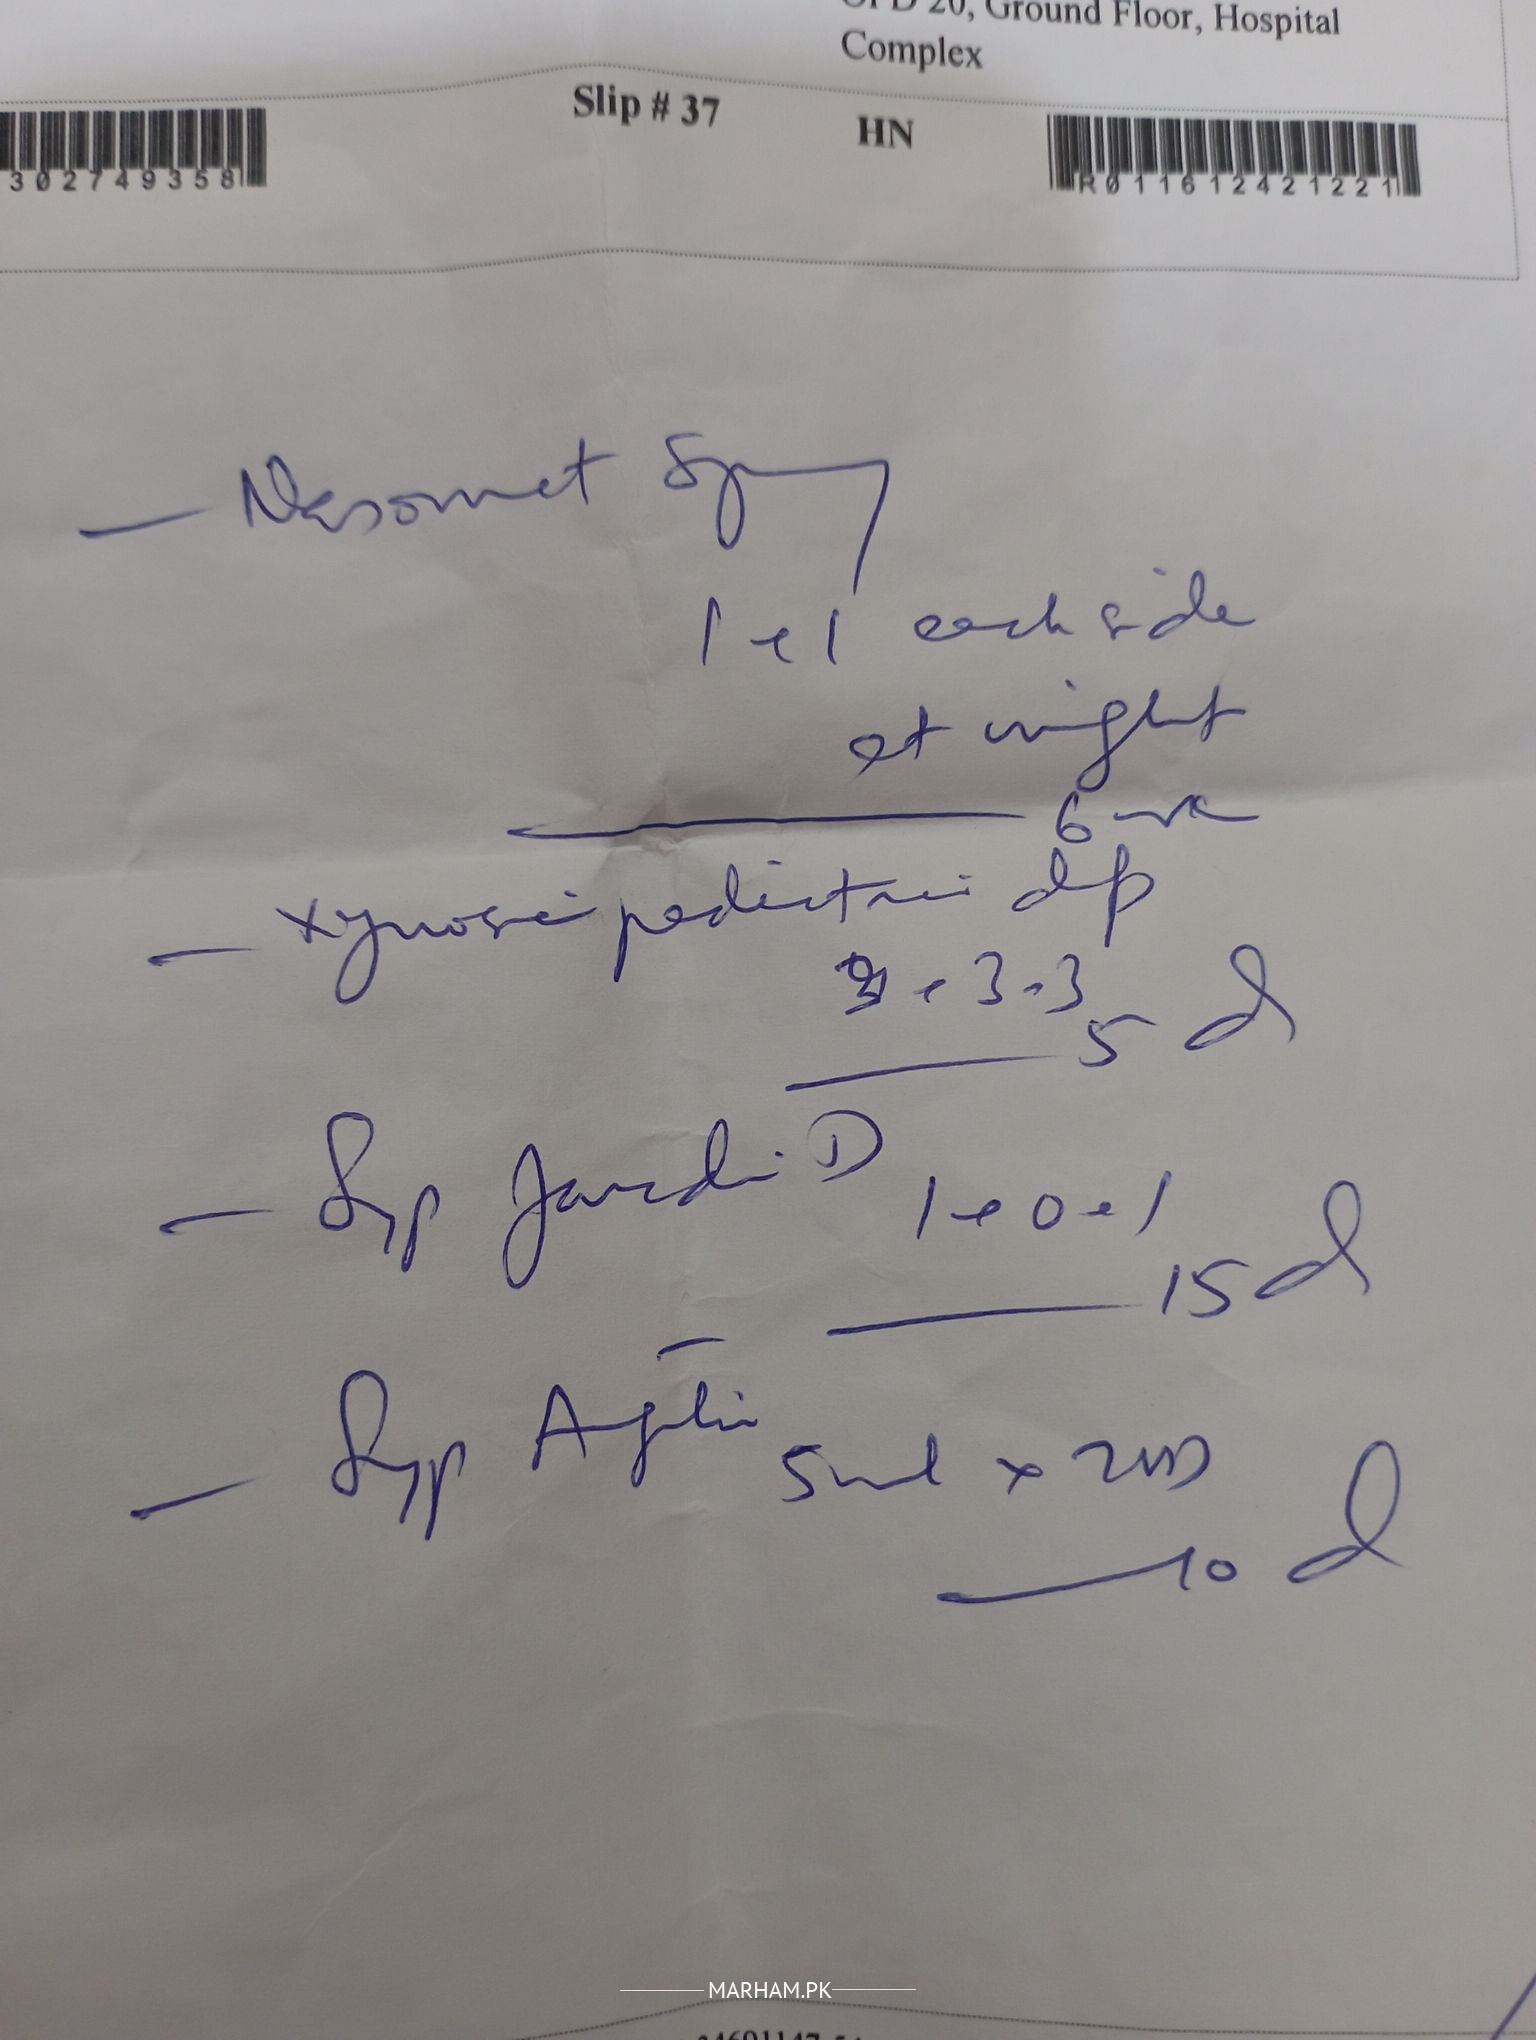 20, Ground Floor, Hospital
Complex
Slip # 37
HN
302749358
R011612421221
- Nasomet Spray
1+1 each side
at night
6
- Xynosine pediatric
+ 3 + 3
5 d
- Syp Jardin D 1+0+1
15 d
- Syp
5ml x
10 d
MARHAM.PK